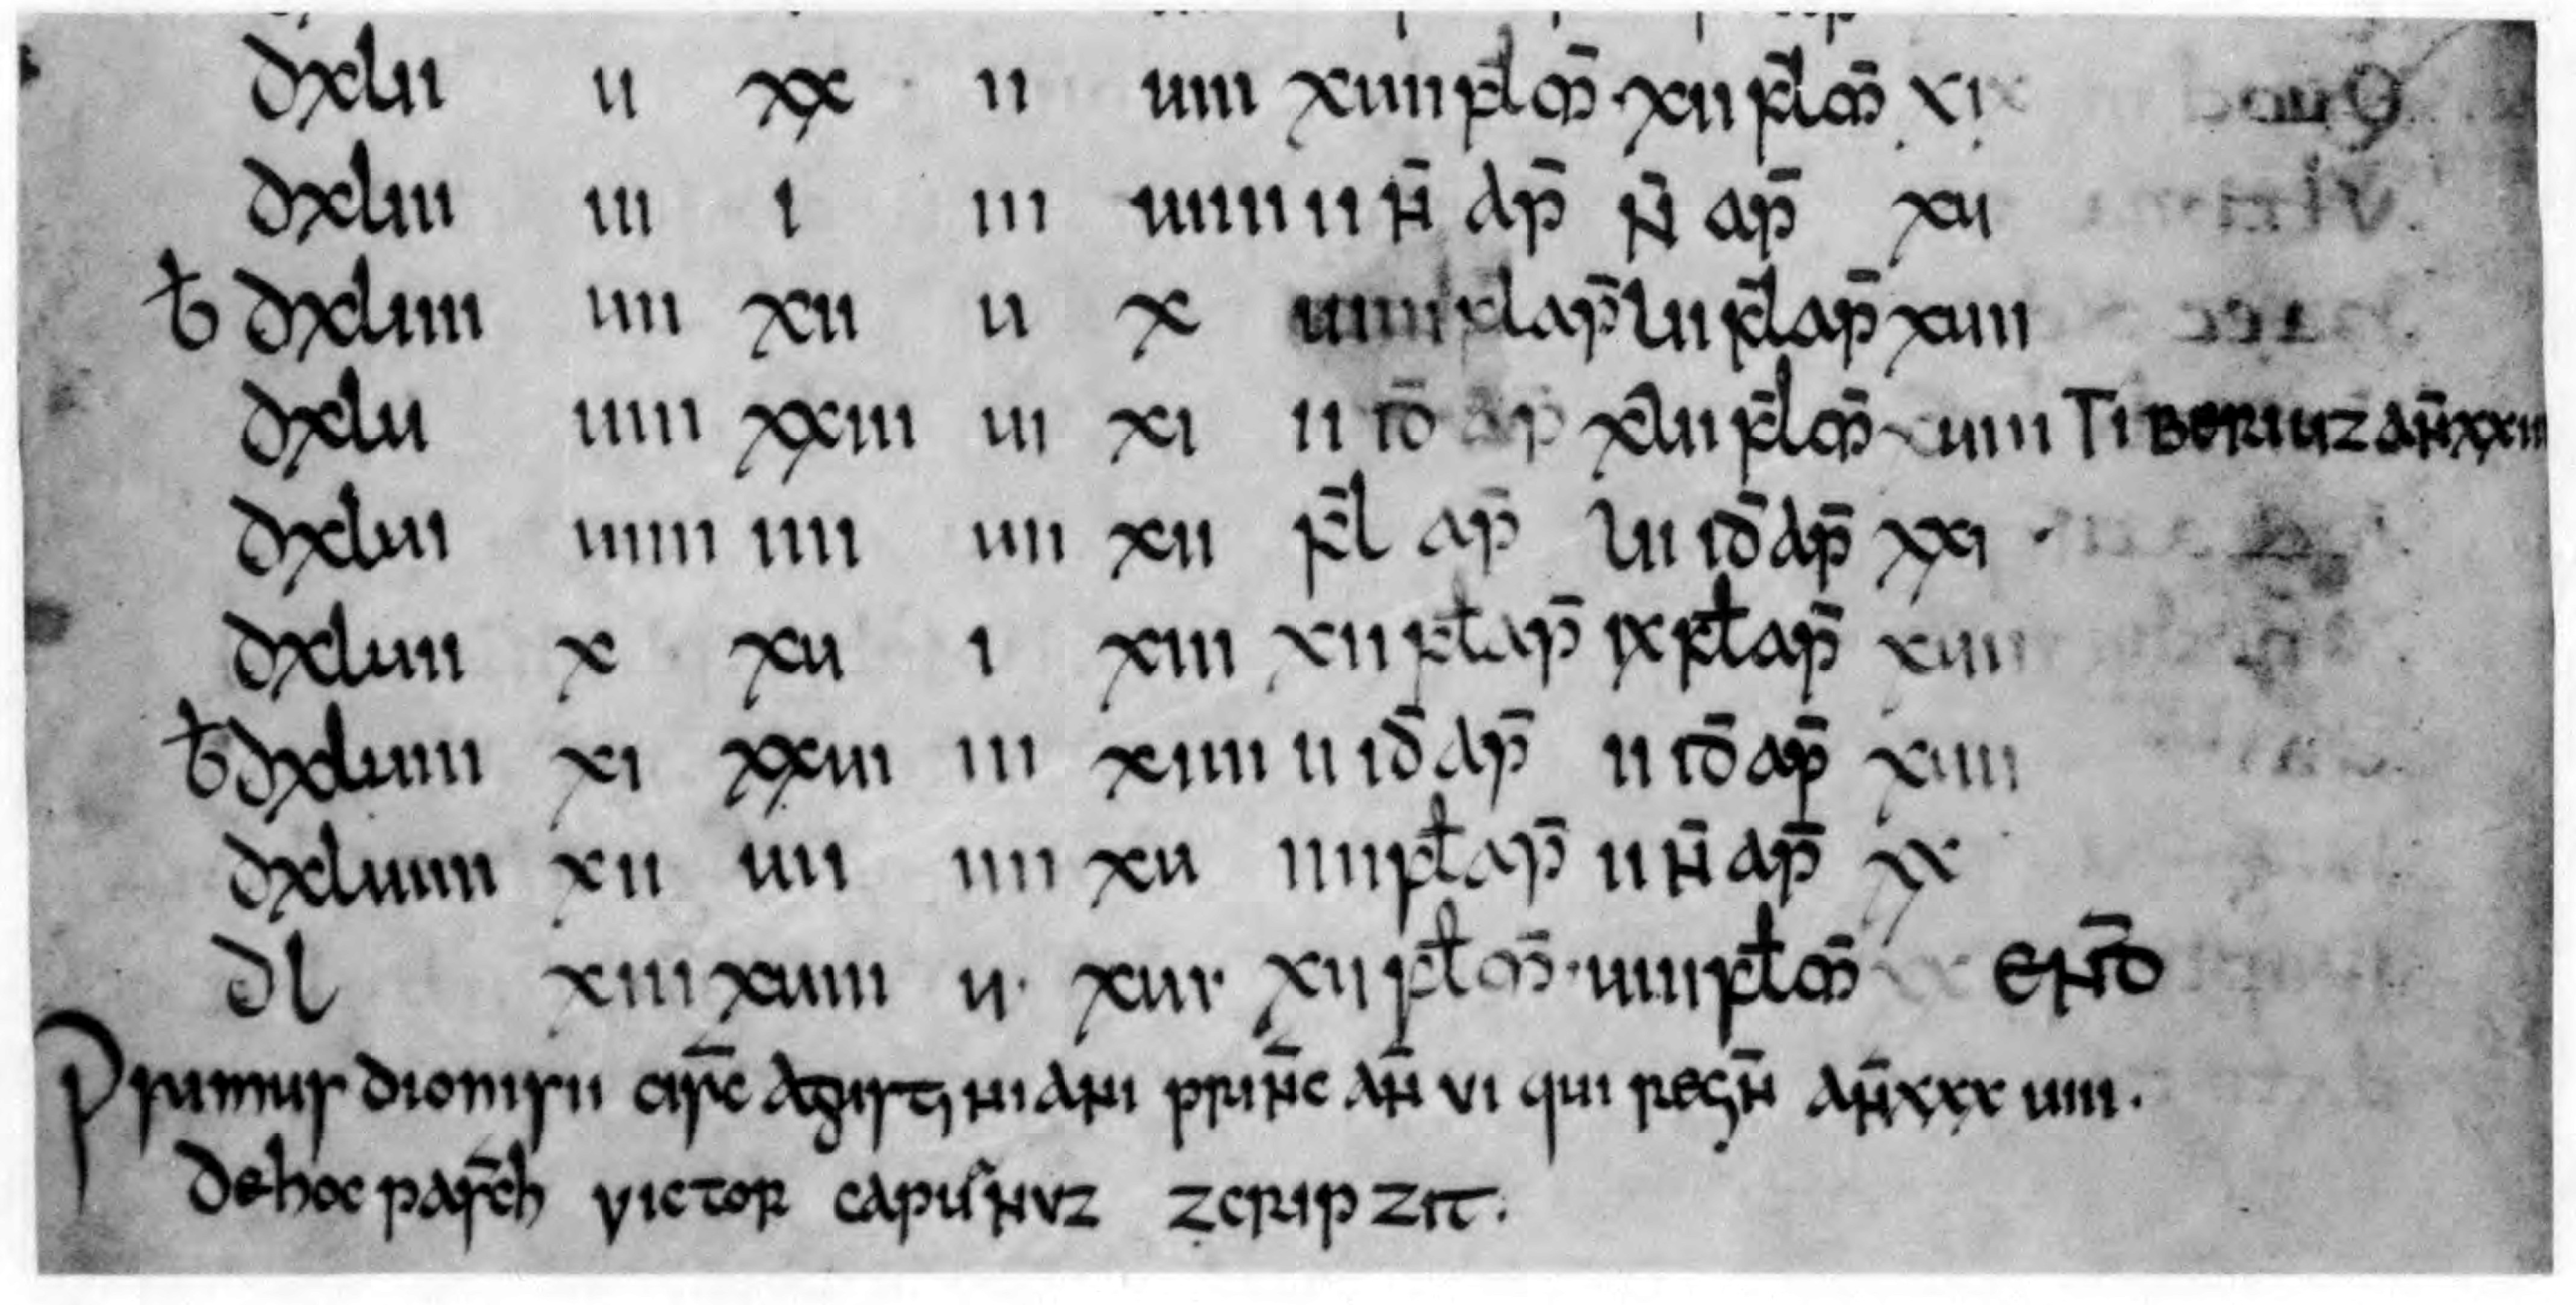 dxlii u xx ii uiii xuii kl m̄ xii kl m̄ xi
dxliii ui i iii uiiii ii n̄ ap̄ n̄ ap̄ xu
b dxliiii uii xii u x uiiii kl ap̄ ui kl ap̄ xuii
dxlu uiii xxiii ui xi ii id̄ ap xui kl m̄ xuiii TIBERIUS AN̄ XXIII
dxlui uiiii iiii uii xii kl ap̄ ui id̄ ap̄ xxi
dxluii x xu i xiii xii kl ap̄ ix kl ap̄ xuii
b dxluiii xi xxui iii xiiii u id̄ ap̄ ii id̄ ap̄ xuii
dxluiiii xii uii iiii xu iiii kl ap̄ ii n̄ ap̄ xx
dl xiii xuiii u· xui· xu kl m̄· uiii kl m̄ xx EN̄D
Primus dionisii cisc̄ agiustiniani prin̄c an̄ vi qui regn̄ an̄ xxx uiii.
dehoc pasc̄h victor capuanus scripsit.